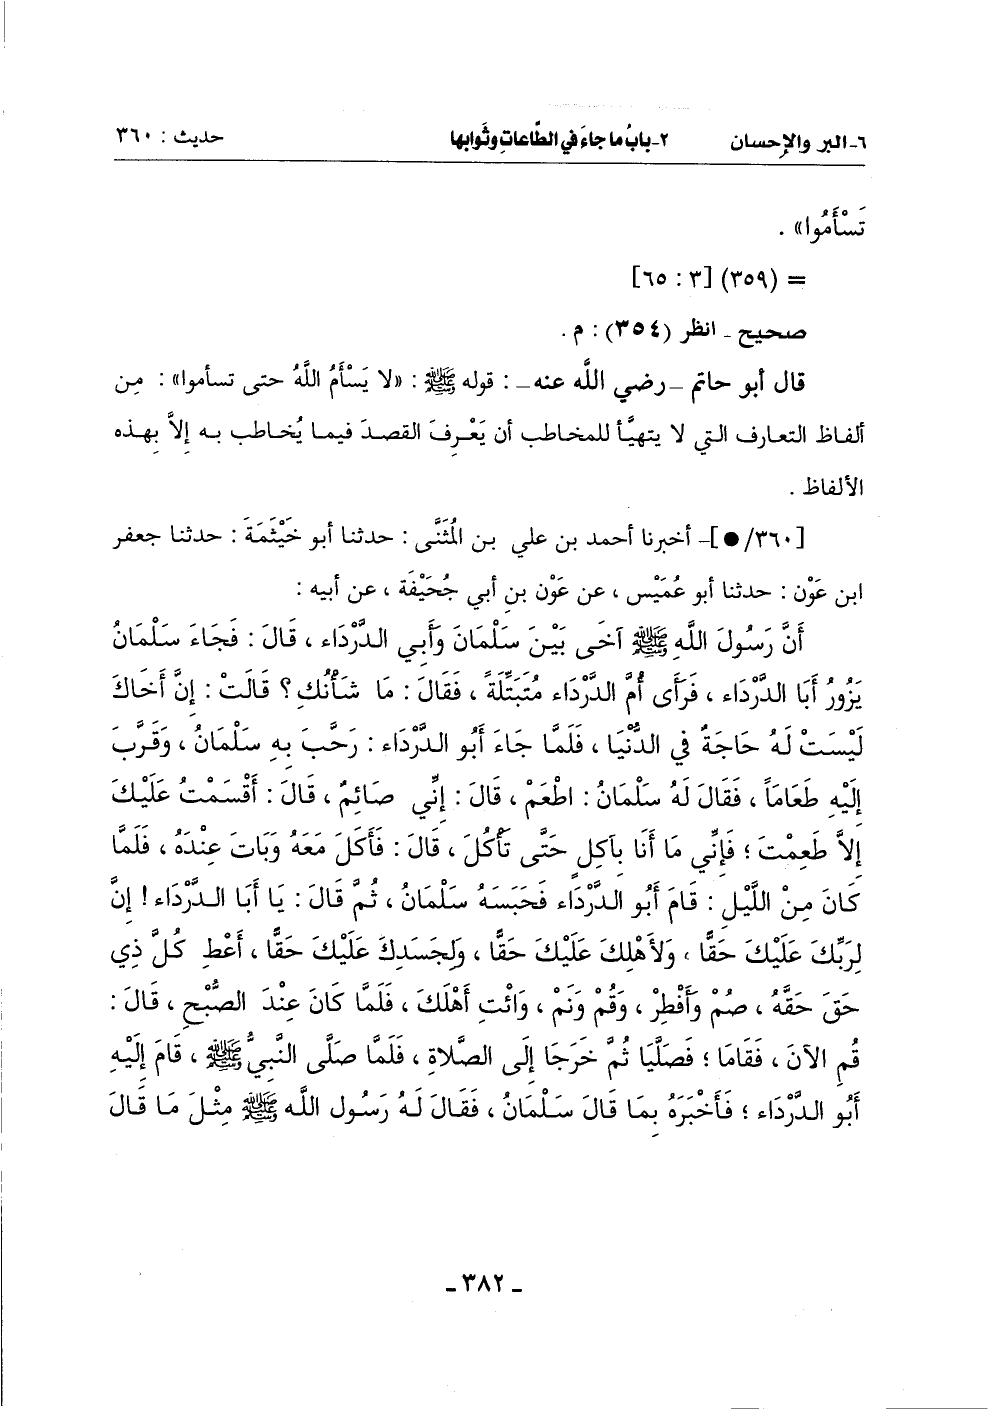 ٦ـ البر والإحسان ٢ـ بابُ ما جاءَ في الطَّاعاتِ وثَوابِها حديث : ٣٦٠
تَسْأَمُوا» .
= (٣٥٩) [٣ : ٦٥]
صحيح ـ انظر (٣٥٤) : م .
قال أبو حاتم ـ رضي الله عنه ـ : قوله ﷺ : «لا يَسْأَمُ اللَّهُ حتى تسأموا» : مِن
ألفاظ التعارف التي لا يتهيَّأ للمخاطب أن يَعْرِفَ القصدَ فيما يُخاطب به إلاَّ بهذه
الألفاظ .
[٣٦٠/●]ـ أخبرنا أحمد بن علي بن المُثَنَّى : حدثنا أبو خَيْثَمَةَ : حدثنا جعفر
ابن عَوْن : حدثنا أبو عُمَيْس ، عن عَوْن بنِ أبي جُحَيْفَة ، عن أبيه :
أَنَّ رَسُولَ اللَّهِ ﷺ آخَى بَيْنَ سَلْمَانَ وَأَبِي الدَّرْدَاء ، قَالَ : فَجَاءَ سَلْمَانُ
يَزُورُ أَبَا الدَّرْدَاء ، فَرَأى أُمَّ الدَّرْدَاء مُتَبَتِّلَةً ، فَقَالَ : مَا شَأْنُكِ؟ قَالَتْ : إِنَّ أَخَاكَ
لَيْسَتْ لَهُ حَاجَةٌ فِي الدُّنْيَا ، فَلَمَّا جَاءَ أَبُو الدَّرْدَاء : رَحَّبَ بِهِ سَلْمَانُ ، وَقَرَّبَ
إِلَيْهِ طَعَاماً ، فَقَالَ لَهُ سَلْمَانُ : اطْعَمْ ، قَالَ : إِنِّي صَائِمٌ ، قَالَ : أَقْسَمْتُ عَلَيْكَ
إِلاَّ طَعِمْتَ ؛ فَإِنِّي مَا أَنَا بِآكِلٍ حَتَّى تَأْكُلَ ، قَالَ : فَأَكَلَ مَعَهُ وَبَاتَ عِنْدَهُ ، فَلَمَّا
كَانَ مِنْ اللَّيْلِ : قَامَ أَبُو الدَّرْدَاء فَحَبَسَهُ سَلْمَانُ ، ثُمَّ قَالَ : يَا أَبَا الدَّرْدَاء ! إِنَّ
لِرَبِّكَ عَلَيْكَ حَقًّا ، وَلأَهْلِكَ عَلَيْكَ حَقًّا ، وَلِجَسَدِكَ عَلَيْكَ حَقًّا ، أَعْطِ كُلَّ ذِي
حَقَ حَقَّهُ ، صُمْ وَأَفْطِرْ ، وَقُمْ وَنَمْ ، وَائْتِ أَهْلَكَ ، فَلَمَّا كَانَ عِنْدَ الصُّبْحِ ، قَالَ :
قُم الآنَ ، فَقَامَا ؛ فَصَلَّيَا ثُمَّ خَرَجَا إِلَى الصَّلاةِ ، فَلَمَّا صَلَّى النَّبِيُّ ﷺ ، قَامَ إِلَيْهِ
أَبُو الدَّرْدَاء ؛ فَأَخْبَرَهُ بِمَا قَالَ سَلْمَانُ ، فَقَالَ لَهُ رَسُول اللَّه ﷺ مِثْلَ مَا قَالَ
ـ ٣٨٢ ـ